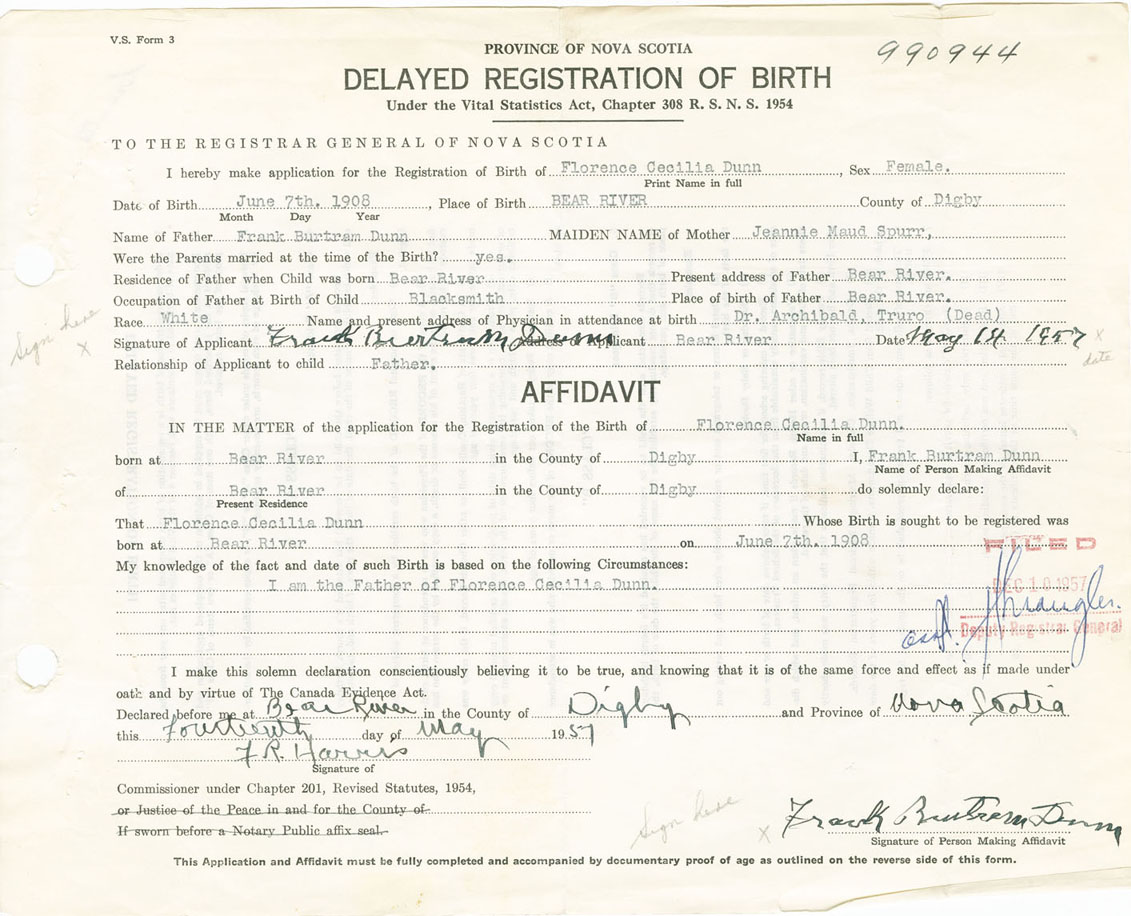 V.S. Form 3
PROVINCE OF NOVA SCOTIA
990944
DELAYED REGISTRATION OF BIRTH
Under the Vital Statistics Act, Chapter 308 R. S. N. S. 1954
TO THE REGISTRAR GENERAL OF NOVA SCOTIA
I hereby make application for the Registration of Birth of Florence Cecilia Dunn, Sex Female.
Print Name in full
Date of Birth June 7th. 1908, Place of Birth BEAR RIVER County of Digby
Month Day Year
Name of Father Frank Burtram Dunn MAIDEN NAME of Mother Jeannie Maud Spurr,
Were the Parents married at the time of the Birth? yes.
Residence of Father when Child was born Bear River Present address of Father Bear River.
Occupation of Father at Birth of Child Blacksmith Place of birth of Father Bear River.
Race White Name and present address of Physician in attendance at birth Dr. Archibald, Truro (Dead)
Sign here x
Signature of Applicant Frank Burtram Dunn Address of Applicant Bear River Date May 14 1957 x date
Relationship of Applicant to child Father.
AFFIDAVIT
IN THE MATTER of the application for the Registration of the Birth of Florence Cecilia Dunn.
Name in full
born at Bear River in the County of Digby I, Frank Burtram Dunn
Name of Person Making Affidavit
of Bear River in the County of Digby do solemnly declare:
Present Residence
That Florence Cecilia Dunn Whose Birth is sought to be registered was
born at Bear River on June 7th. 1908
FILED
My knowledge of the fact and date of such Birth is based on the following Circumstances:
I am the Father of Florence Cecilia Dunn.
DEC 10 1957
asst. Deputy Registrar General
I make this solemn declaration conscientiously believing it to be true, and knowing that it is of the same force and effect as if made under
oath and by virtue of The Canada Evidence Act.
Declared before me at Bear River in the County of Digby and Province of Nova Scotia
this Fourteenth day of May 1957
F. R. Harris
Signature of
Commissioner under Chapter 201, Revised Statutes, 1954,
or Justice of the Peace in and for the County of
If sworn before a Notary Public affix seal.
Sign here x Frank Burtram Dunn
Signature of Person Making Affidavit
This Application and Affidavit must be fully completed and accompanied by documentary proof of age as outlined on the reverse side of this form.